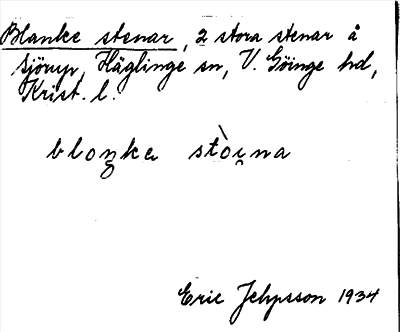 Blanke stenar, 2 stora stenar å
Sjörup, Häglinge sn, V. Göinge hd,
Krist. l.
bloŋke stòi̯na
Eric Jehpsson 1934